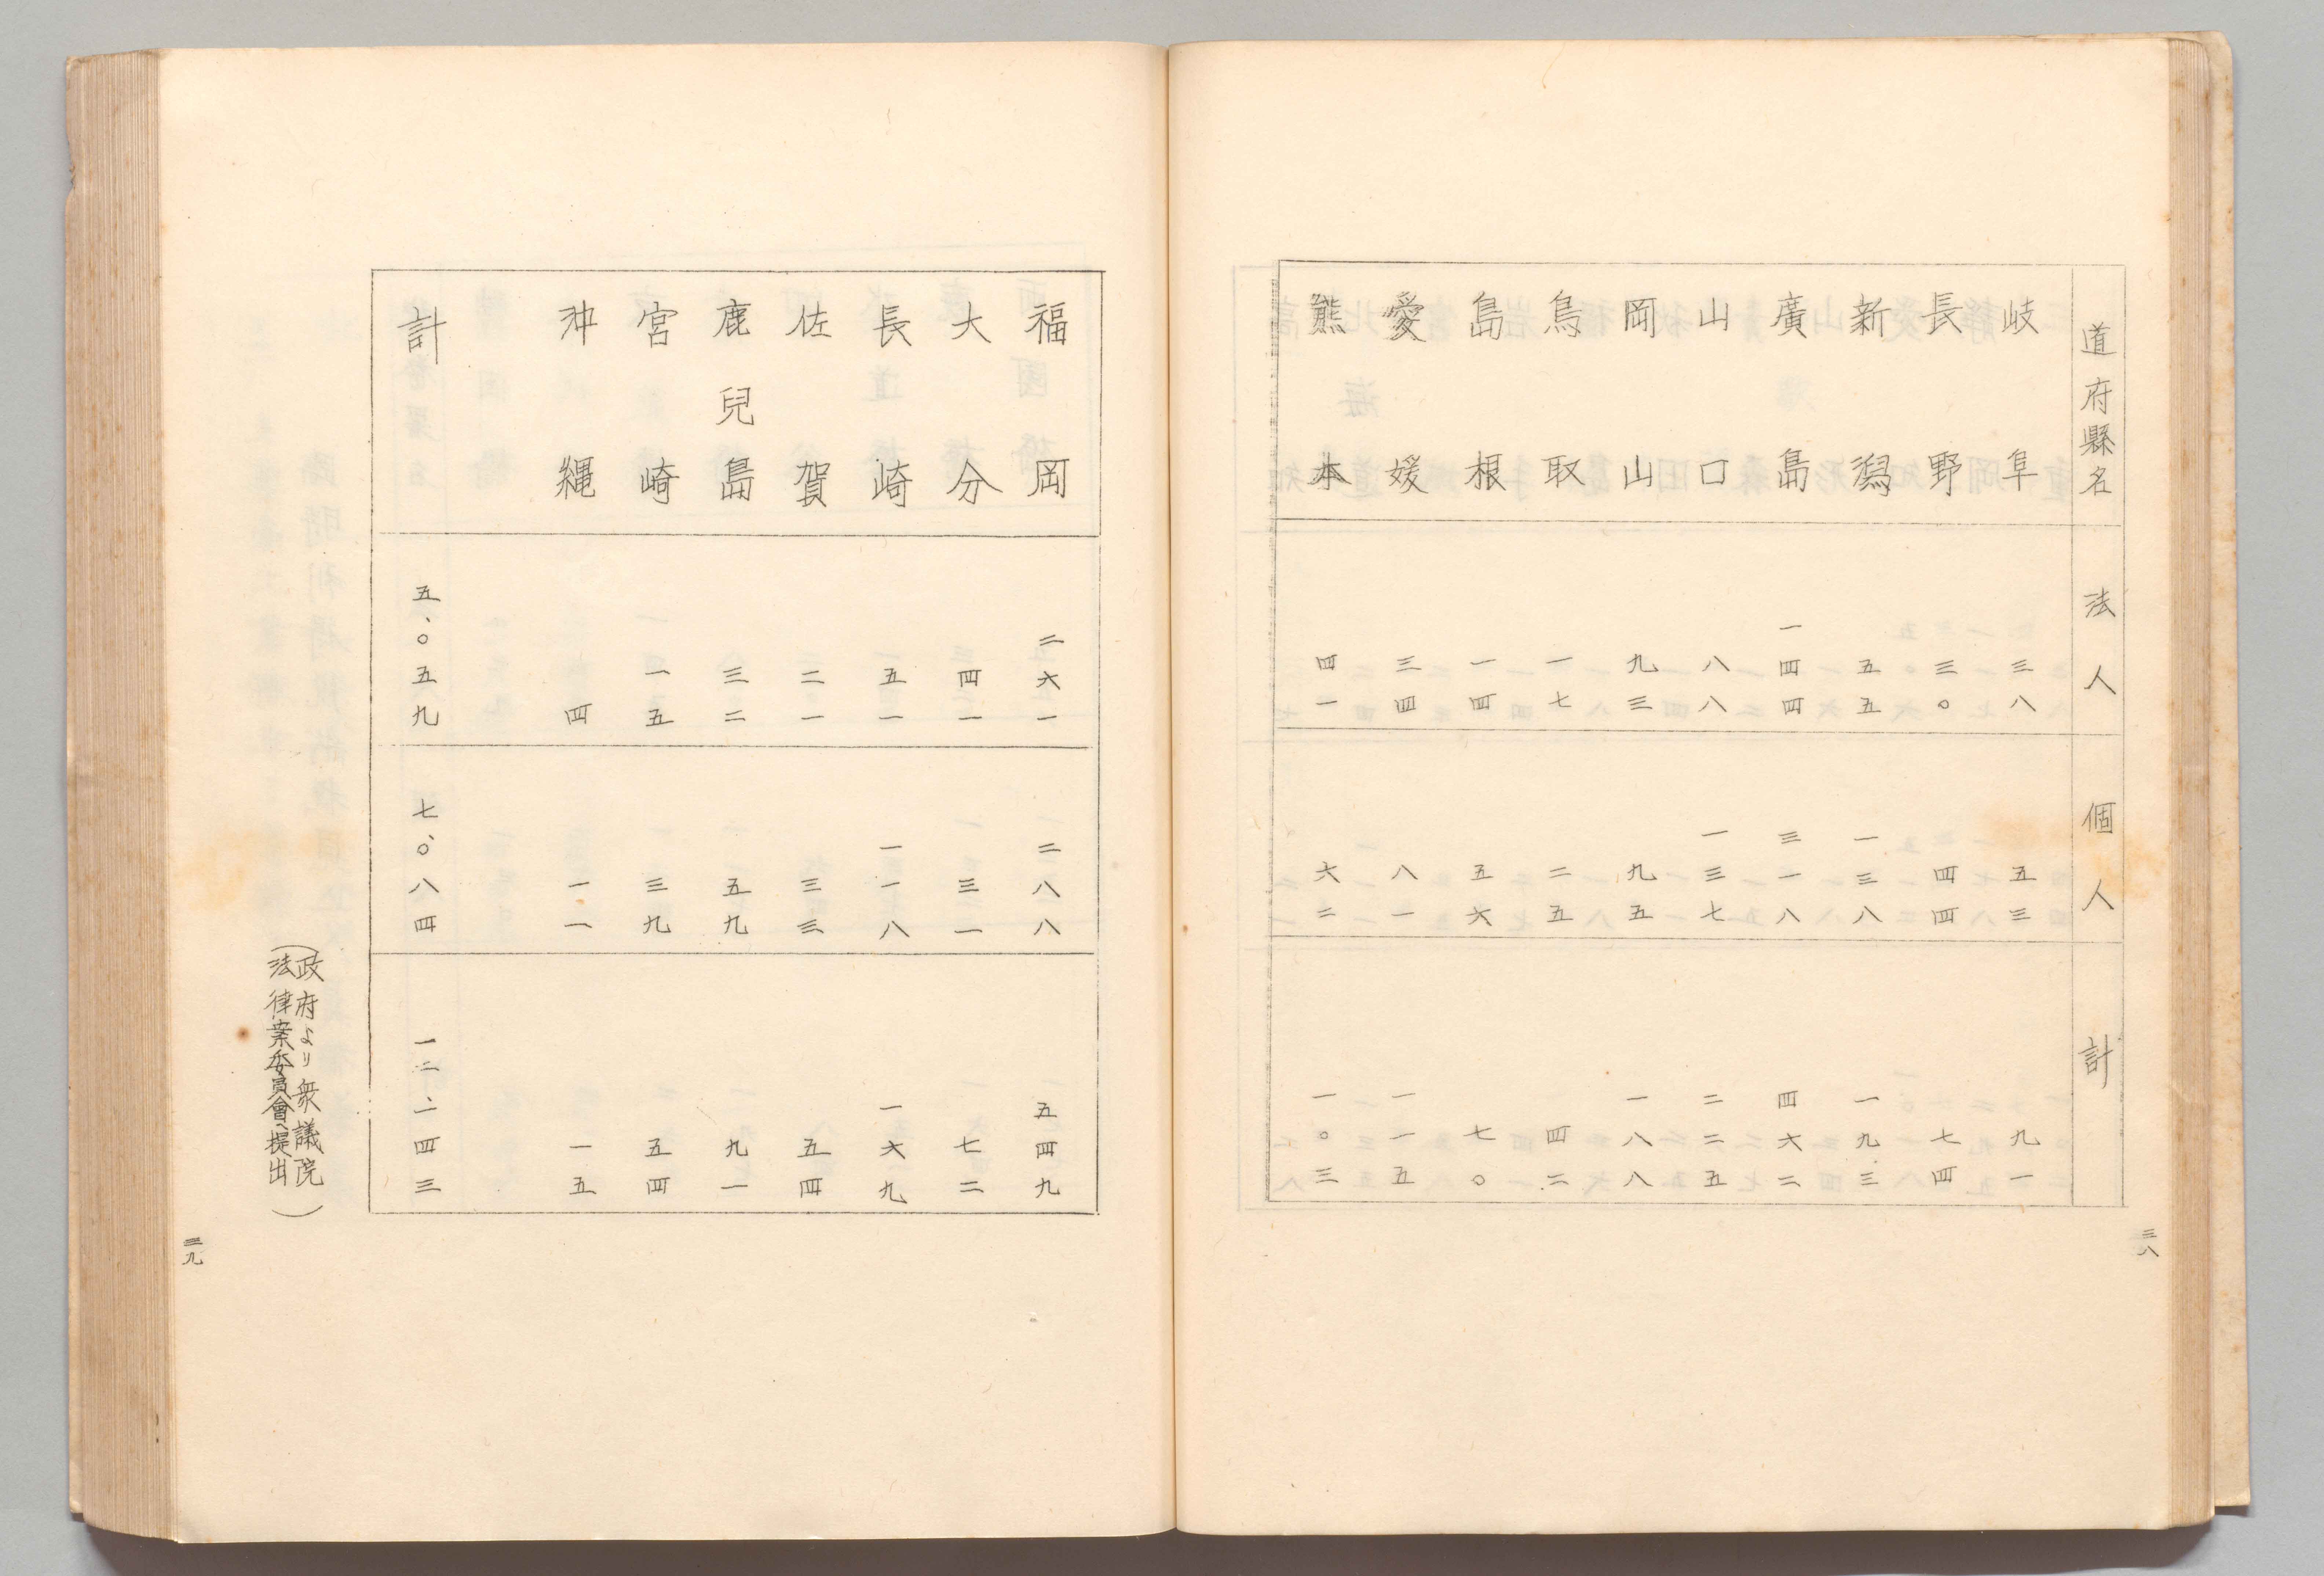 道府縣名 法人 個人 計
岐阜 三八 五三 九一
長野 三〇 四四 七四
新潟 五五 一三八 一九三
廣島 一四四 三一八 四六二
山口 八八 一三七 二二五
岡山 九三 九五 一八八
鳥取 一七 二五 四二
島根 一四 五六 七〇
愛媛 三四 八一 一一五
熊本 四一 六二 一〇三
三八
福岡 二六一 二八八 五四九
大分 四一 三一 七二
長崎 五一 一一八 一六九
佐賀 二一 三三 五四
鹿兒島 三二 五九 九一
宮崎 一五 三九 五四
沖縄 四 一一 一五
計 五、〇五九 七、〇八四 一二、一四三
(政府より衆議院
法律案委員會へ提出)
三九